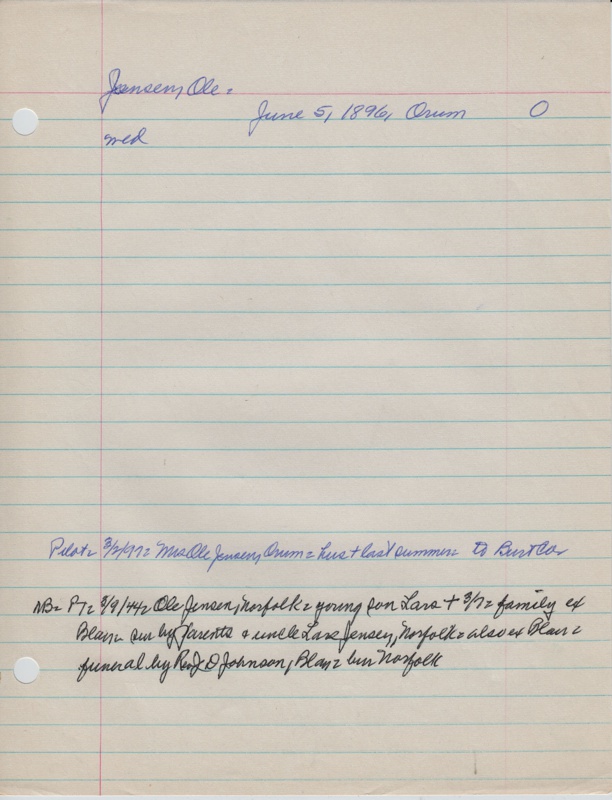 Jensen, Ole =
June 5, 1896, Orum O
wed
Pilot = 3/2/97 = Mrs Ole Jensen, Orum = hus + last summer = to Burt Co
NB = PT = 3/9/44 = Ole Jensen, Norfolk = young son Lars + 3/7 = family ex
Blair = sur by parents & uncle Lars Jensen, Norfolk = also ex Blair =
funeral by Rev J D Johnson, Blair = bur Norfolk